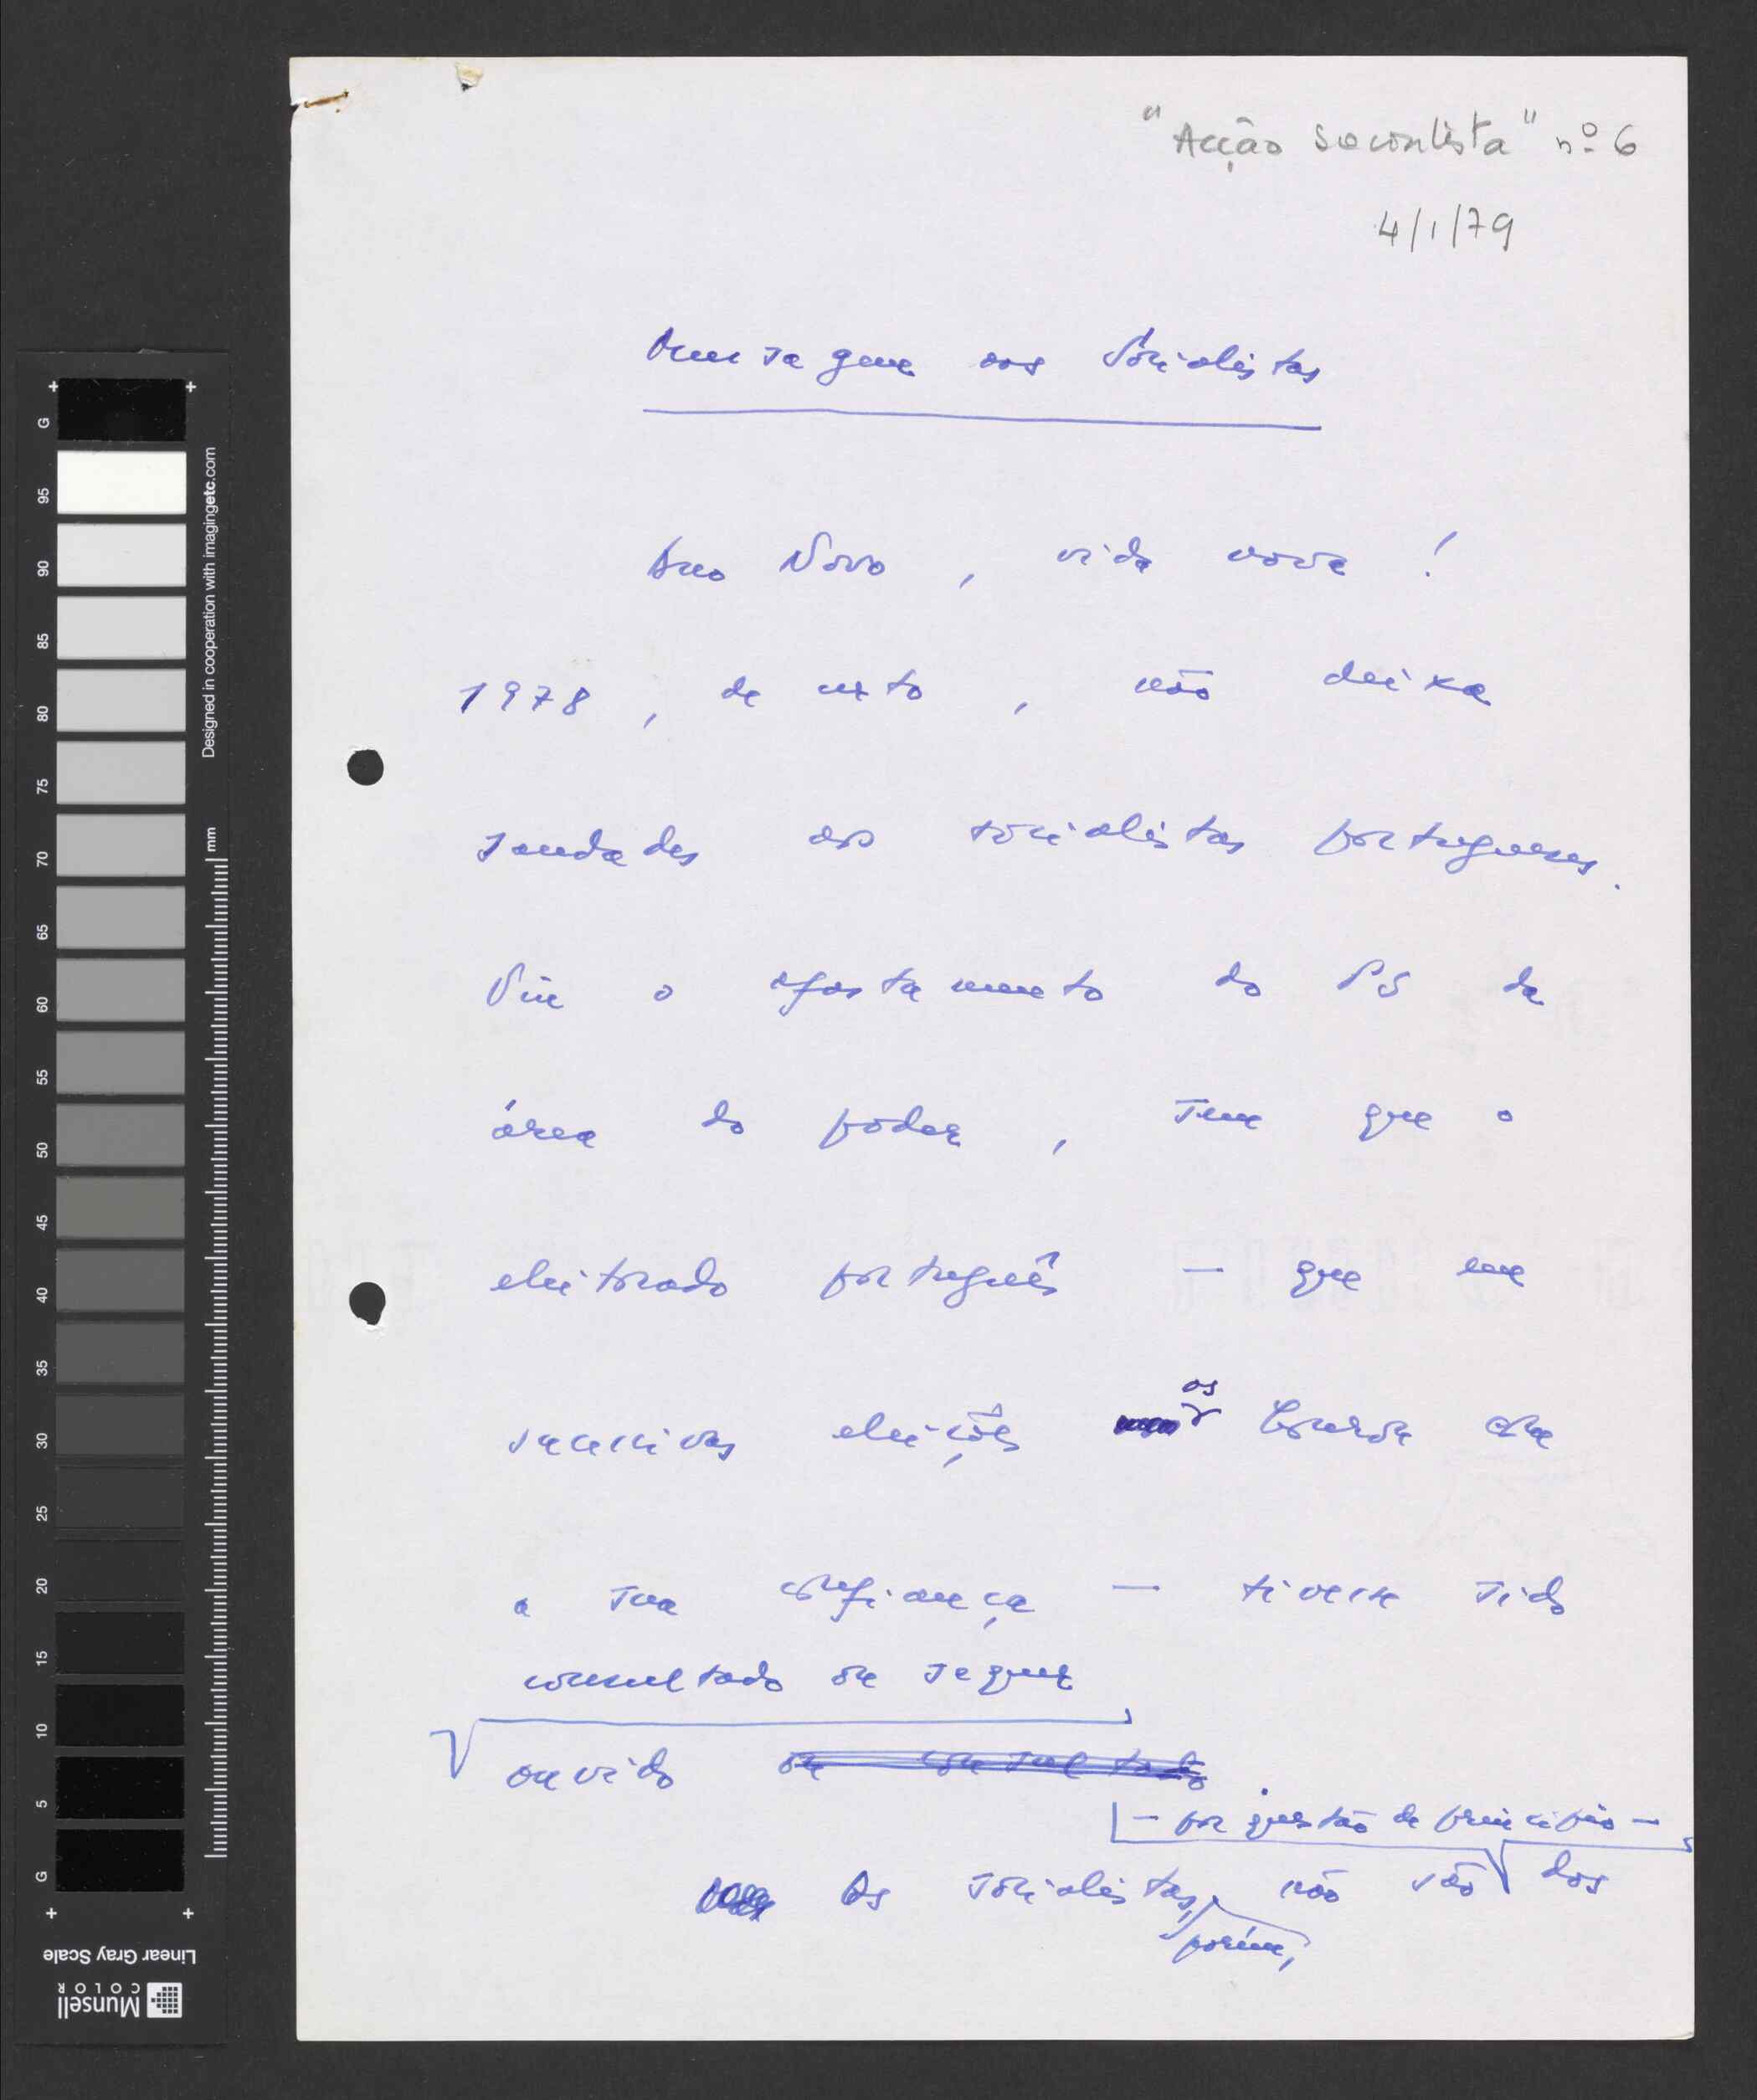 "Acção Socialista" nº 6
4/1/79
Mensagem aos Socialistas
Ano Novo, vida nova!
1978, de certo, não deixa
saudades aos socialistas portugueses.
Viu o afastamento do PS da
área do poder, sem que o
eleitorado português — que em
sucessivas eleições
os
a sua confiança — tivesse sido
consultado ou sequer
ouvido ou consultado.
— por questão de princípio —
Os socialistas, não são dos
porém,
G 95 90 85 80 75 70 65 60 55 50 45 40 35 30 25 20 15 10 5 G
Designed in cooperation with imagingetc.com
mm
Linear Gray Scale
Munsell
COLOR